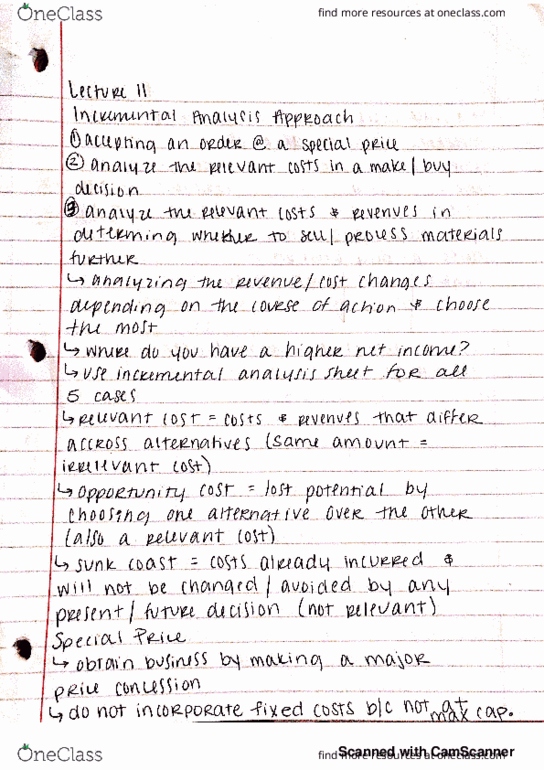 OneClass
find more resources at oneclass.com
Lecture 11
Incremental Analysis Approach
① accepting an order @ a special price
② analyze the relevant costs in a make/buy
decision
③ analyze the relevant costs & revenues in
determing whether to sell/process materials
further
↳ analyzing the revenue/cost changes
depending on the course of action & choose
the most
↳ where do you have a higher net income?
↳ use incremental analysis sheet for all
5 cases
↳ relevant cost = costs & revenues that differ
accross alternatives (same amount =
irrelevant cost)
↳ opportunity cost = lost potential by
choosing one alternative over the other
(also a relevant cost)
↳ sunk coast = costs already incurred &
will not be changed/avoided by any
present/future decision (not relevant)
Special Price
↳ obtain business by making a major
price concession
↳ do not incorporate fixed costs b/c not at
max cap.
OneClass
find more resources at oneclass.com
Scanned with CamScanner